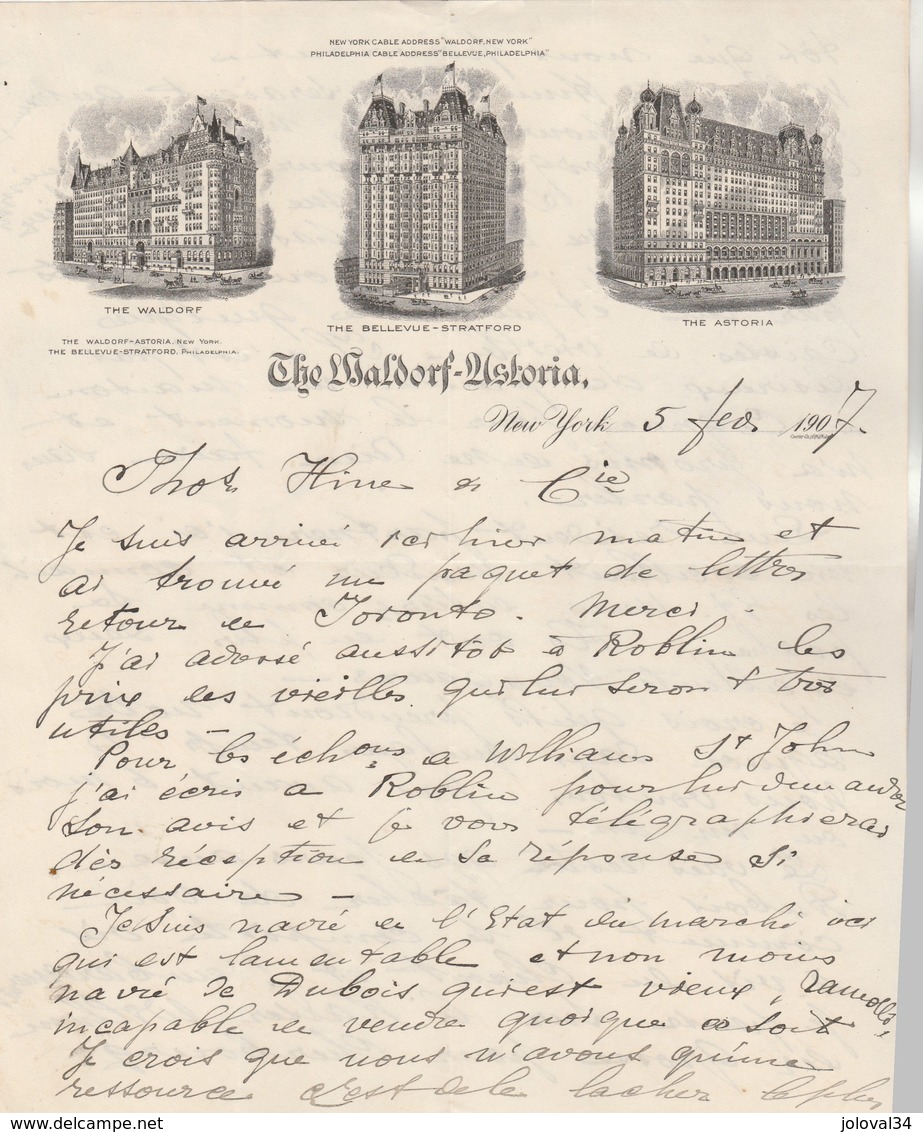 NEW YORK CABLE ADDRESS "WALDORF, NEW YORK"
PHILADELPHIA CABLE ADDRESS "BELLEVUE, PHILADELPHIA"
THE WALDORF
THE BELLEVUE-STRATFORD
THE ASTORIA
THE WALDORF-ASTORIA, NEW YORK.
THE BELLEVUE-STRATFORD, PHILADELPHIA.
The Waldorf-Astoria,
New York 5 fev. 1907.
Thos. Hine & Cie
Je suis arrivé ici hier matin et
ai trouvé un paquet de lettres
retour de Toronto. Merci.
J'ai adressé aussitôt à Roblin les
prix des vieilles qui lui seront très
utiles —
Pour les échons a Williams St John
j'ai écris a Roblin pour lui demander
son avis et je vous télégraphierai
dès réception de sa réponse si
nécessaire —
Je suis navré de l'Etat du marché ici
qui est lamentable et non moins
navré de Dubois qui est vieux, ramolli,
incapable de vendre quoique ce soit
Je crois que nous n'avons qu'une
ressource c'est de le lacher le plus
joloval34